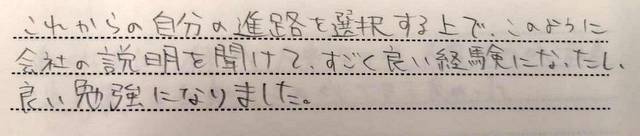 これからの自分の進路を選択する上で、このように
会社の説明を聞けて、すごく良い経験になったし、
良い勉強になりました。